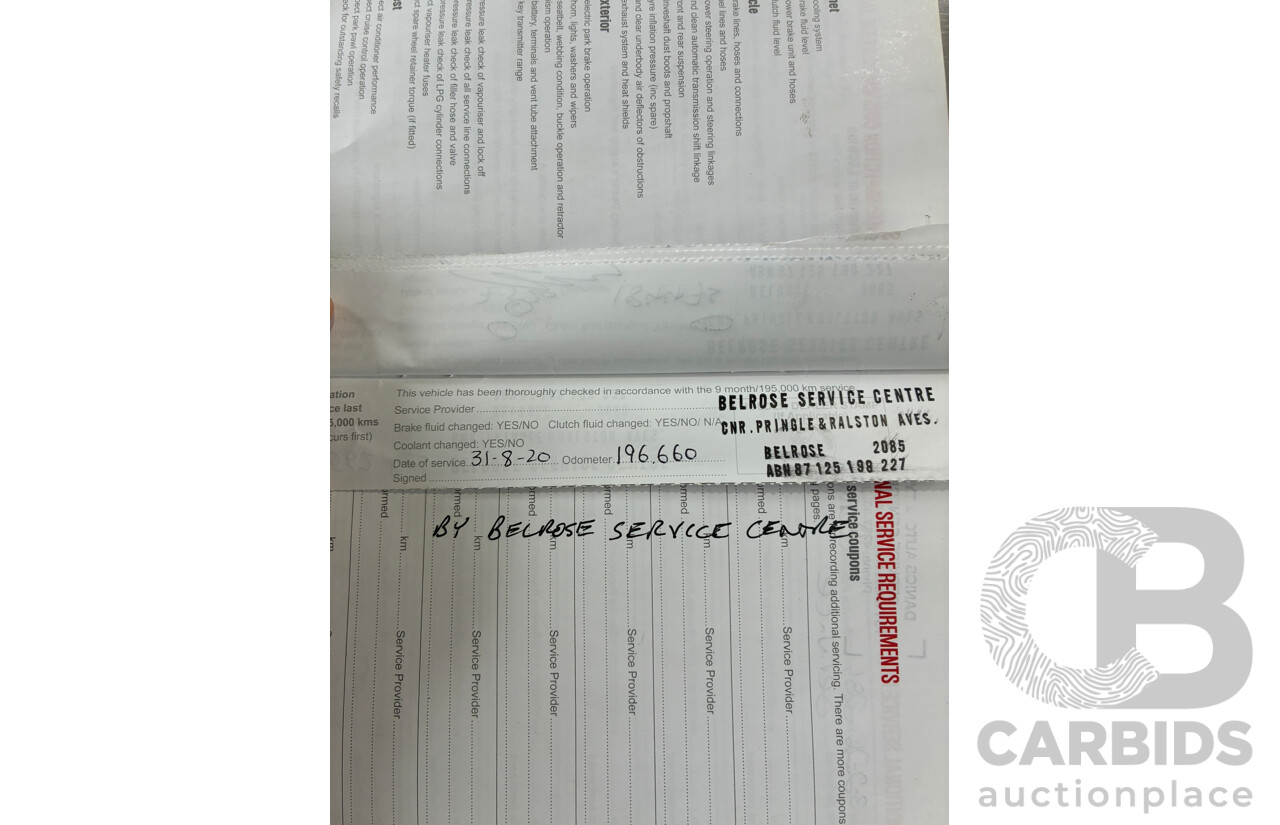 ooling system
rake fluid level
ower brake unit and hoses
lutch fluid level
rake lines, hoses and connections
uel lines and hoses
ower steering operation and steering linkages
nd clean automatic transmission shift linkage
ront and rear suspension
riveshaft dust boots and propshaft
yre inflation pressure (inc spare)
and clear underbody air deflectors of obstructions
exhaust system and heat shields
exterior
electric park brake operation
horn, lights, washers and wipers
seatbelt, webbing condition, buckle operation and retractor
ism operation
battery, terminals and vent tube attachment
key transmitter range
ressure leak check of vapouriser and lock off
ressure leak check of all service line connections
ressure leak check of filler hose and valve
pressure leak check of LPG cylinder connections
ct vapouriser heater fuses
ct spare wheel retainer torque (if fitted)
st
ect air conditioner performance
ect cruise control operation
ect park pawl operation
eck for outstanding safety recalls
ation
ce last
5,000 kms
curs first)
This vehicle has been thoroughly checked in accordance with the 9 month/195,000 km service
Service Provider
Brake fluid changed: YES/NO Clutch fluid changed: YES/NO/ N/A
Coolant changed: YES/NO
Date of service 31-8-20 Odometer 196,660
Signed
BELROSE SERVICE CENTRE
CNR. PRINGLE & RALSTON AVES.
BELROSE 2085
ABN 87 125 198 227
BY BELROSE SERVICE CENTRE
NAL SERVICE REQUIREMENTS
service coupons
ons are for recording additional servicing. There are more coupons
pages
rmed km Service Provider
rmed km Service Provider
rmed km Service Provider
rmed km Service Provider
rmed km Service Provider
rmed km Service Provider
CARBIDS
auctionplace